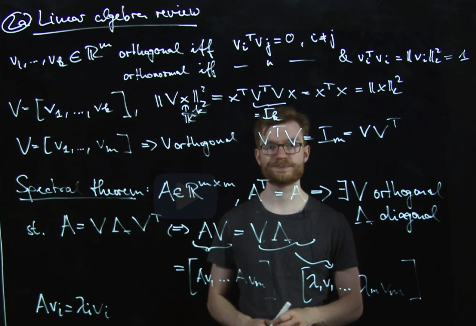 2a) Linear algebra review
v₁,…,vₖ ∈ ℝᵐ orthogonal iff vᵢᵀvⱼ = 0, i≠j
orthonormal iff — " — & vᵢᵀvᵢ = ‖vᵢ‖₂² = 1
V = [v₁,…,vₖ], ‖Vx‖₂² = xᵀVᵀVx = xᵀx = ‖x‖₂²
ℝᵏ = Iₖ
V = [v₁,…,vₘ] ⇒ V orthogonal VᵀV = Iₘ = VVᵀ
Spectral theorem: A ∈ ℝᵐˣᵐ, Aᵀ = A ⇒ ∃ V orthogonal
Λ diagonal
st. A = VΛVᵀ ⇔ AV = VΛ
= [Av₁ … Avₘ] [λ₁v₁ … λₘvₘ]
Avᵢ = λᵢvᵢ